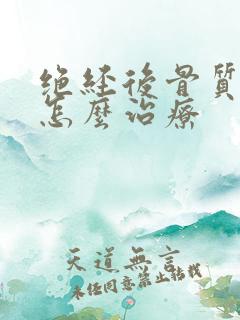 绝经後骨質
怎麼治療
天道無言
未經同意禁止轉載